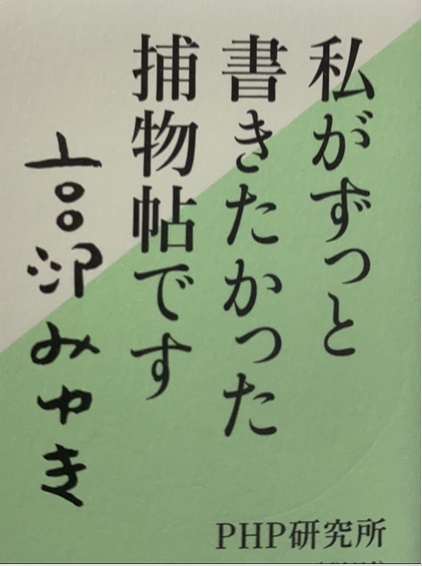 私がずっと
書きたかった
捕物帖です
宮部みゆき
PHP研究所